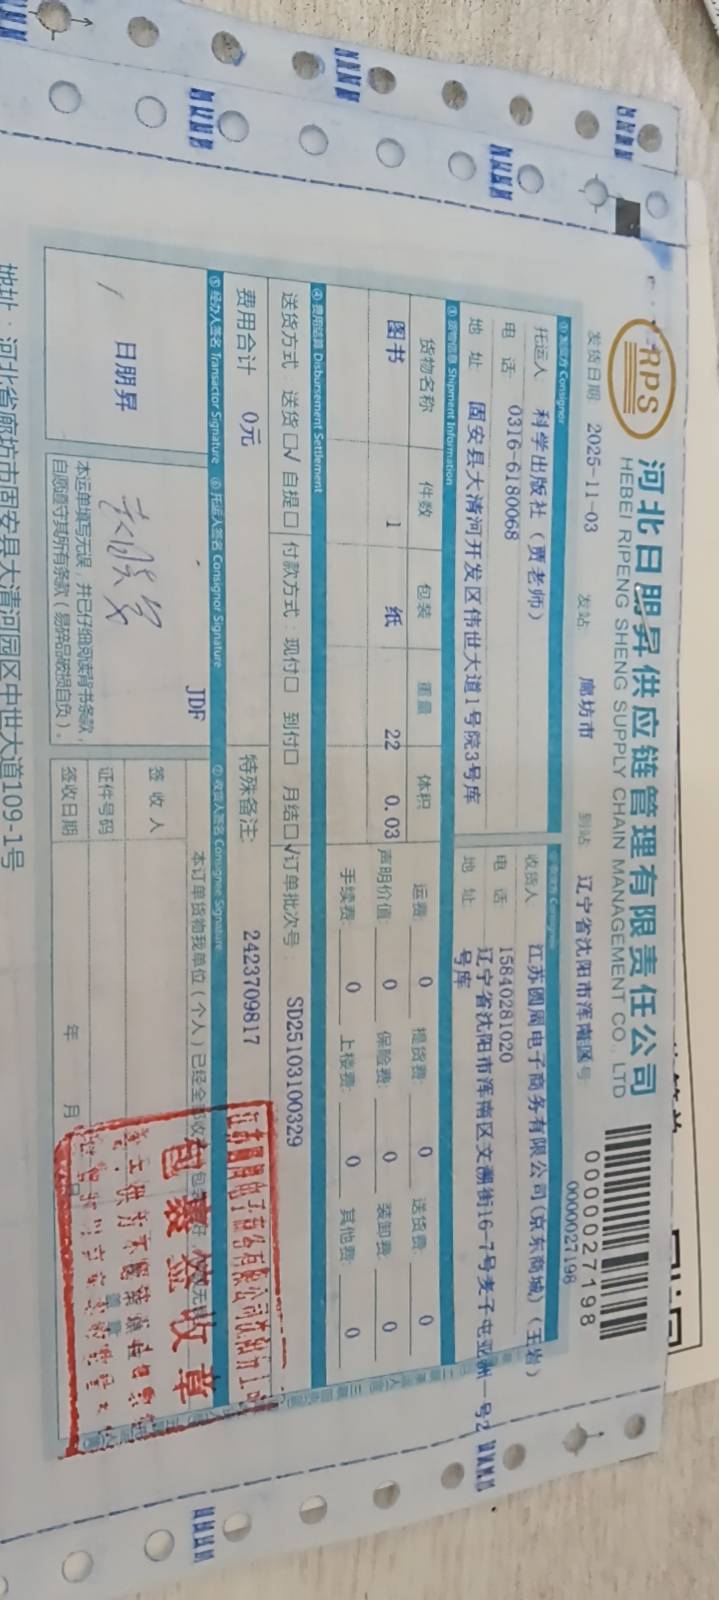 RPS
河北日朋昇供应链管理有限责任公司
HEBEI RIPENG SHENG SUPPLY CHAIN MANAGEMENT CO., LTD
0000027198
0000027198
发货日期 2025-11-03 发站: 廊坊市 到站: 辽宁省沈阳市浑南区 号:
①发货方 Consignor
托运人 科学出版社（贾老师）
电 话: 0316-6180068
地 址 固安县大清河开发区伟世大道1号院3号库
收货人 江苏圆周电子商务有限公司(京东商城)（王岩）
电 话 15840281020
地 址: 辽宁省沈阳市浑南区文溯街16-7号麦子屯亚洲一号2
号库
③货物信息 Shipment Information
货物名称 件数 包装 重量 体积
图书 1 纸 22 0.03
运费: 0 提货费: 0 送货费: 0
声明价值: 0 保险费: 0 装卸费: 0
手续费: 0 上楼费: 0 其他费: 0
④费用结算 Disbursement Settlement
送货方式: 送货□√ 自提□ 付款方式: 现付□ 到付□ 月结□√ 订单批次号: SD25103100329
费用合计 0元 特殊备注: 2423709817
⑤经办人签名 Transactor Signature ⑥托运人签名 Consignor Signature ⑦收货人签名 Consignee Signature
日朋昇
JDF
本运单填写无误，并已仔细阅读背书条款，
自愿遵守其所有条款（易碎品破损自负）。
本订单货物我单位（个人）已经全部收
签 收 人
证件号码
签收日期 年 月
包裹签收章
地址：河北省廊坊市固安县大清河园区中世大道109-1号